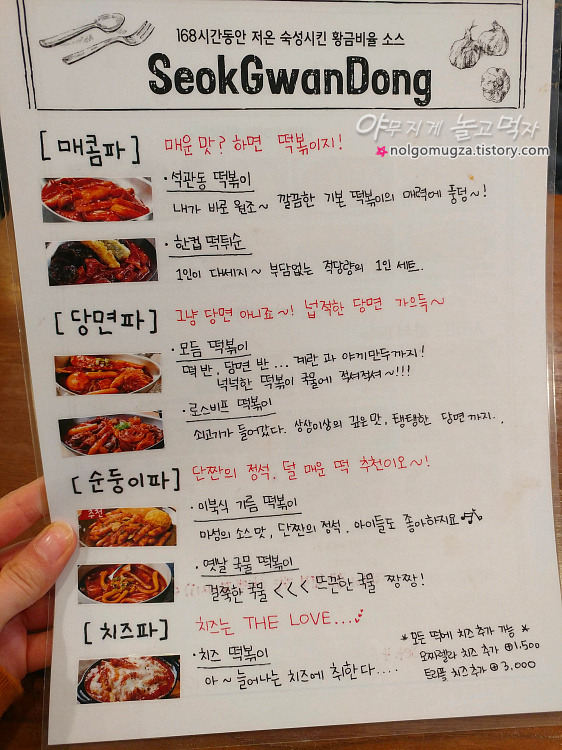 168시간동안 저온 숙성시킨 황금비율 소스
SeokGwanDong
야무지게 놀고먹자
nolgomugza.tistory.com
[ 매콤파 ] 매운 맛? 하면 떡볶이지!
· 석관동 떡볶이
내가 바로 원조~ 깔끔한 기본 떡볶이의 매력에 풍덩~!
· 한컵 떡튀순
1인이 대세지~ 부담없는 적당량의 1인 세트.
[ 당면파 ] 그냥 당면 아니죠~! 넓적한 당면 가으득~
· 모듬 떡볶이
떡 반, 당면 반... 계란 과 야끼만두까지!
넉넉한 떡볶이 국물에 적셔적셔~!!!
· 로스비프 떡볶이
쇠고기가 들어갔다. 상상이상의 깊은 맛, 탱탱한 당면 까지.
[ 순둥이파 ] 단짠의 정석, 덜 매운 떡 추천이오~!
추천
· 이북식 기름 떡볶이
마성의 소스 맛, 단짠의 정석. 아이들도 좋아하지요♪
· 옛날 국물 떡볶이
걸쭉한 국물 <<< 뜨끈한 국물 짱짱!
[ 치즈파 ] 치즈는 THE LOVE...
* 모든 떡에 치즈 추가 가능 *
· 치즈 떡볶이
모짜렐라 치즈 추가 ⊕1,500
아~ 늘어나는 치즈에 취한다....
트리플 치즈 추가 ⊕3,000